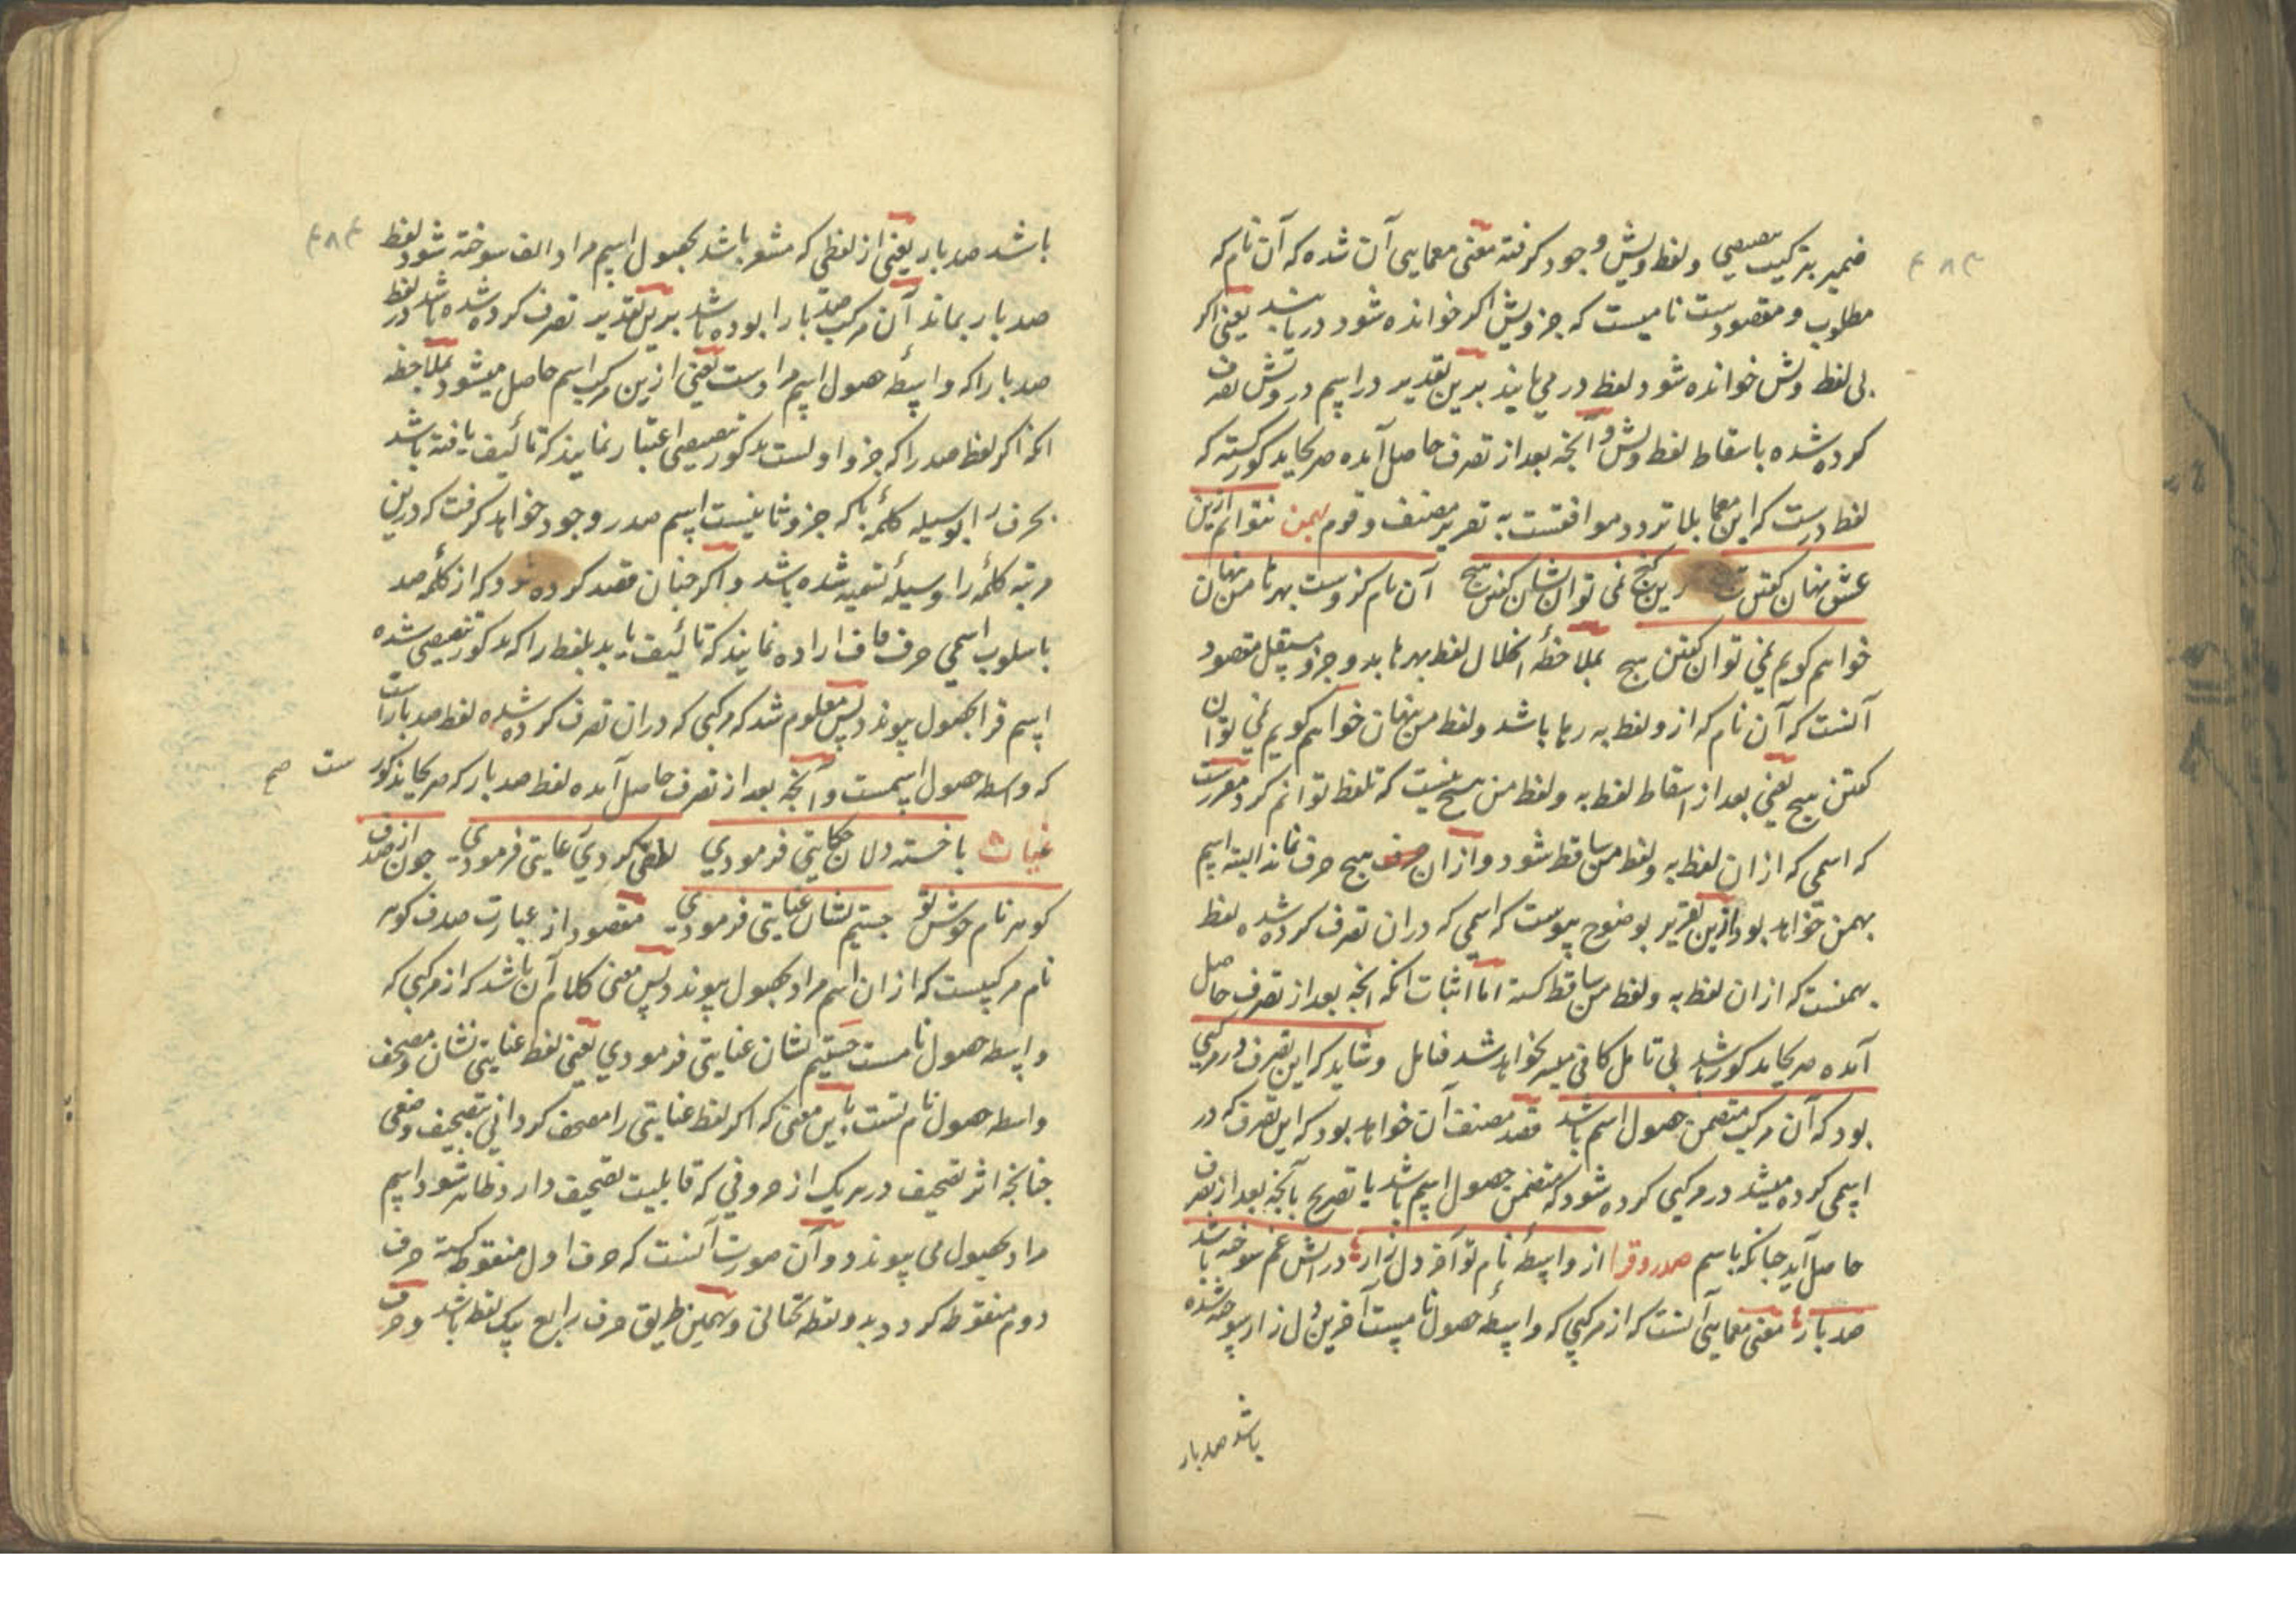 ضمیر بترکیب تنصیصی و لفظ ویش وجود گرفته معنی معمایی آن شده که آن نام که
مطلوب و مقصودست نامیست که جز ویش اگر خوانده شود دریابند یعنی اگر
بی لفظ ویش خوانده شود لفظ در می یابند برین تقدیر در اسم درویش تصرف
کرده شده باسقاط لفظ ویش و آنچه بعد از تصرف حاصل آمده صریحا مذکور گشته که
لفظ درست که این معما بلا تردد موافقست به تقریر مصنف و قوم بهمن نتوانم ازین
عشق نهان گفتن این گنج نمی توان نشان گفتن هیچ آن نام کزوست بهر ما من نهان
خواهم گویم نمی توان گفتن هیچ بملاحظهٔ انحلال لفظ بهر ما بدو جزو مستقل مقصود
آنست که آن نام که از و لفظ به رها باشد و لفظ من نهان خواهم گویم نمی توان
گفتن هیچ یعنی بعد از اسقاط لفظ به و لفظ من هیچ نیست که تلفظ توانم کرد مقررست
که اسمی که از ان لفظ به و لفظ من ساقط شود و از ان حرف هیچ حرف نماند البته اسم
بهمن خواهد بود ازین تقریر بوضوح پیوست که اسمی که دران تصرف کرده شده لفظ
بهمنست که از ان لفظ به و لفظ من ساقط گشته اما اثبات آنکه آنچه بعد از تصرف حاصل
آمده صریحا مذکور باشد بی تامل کافی میسر نخواهد شد فتامل و شاید که این تصرف در مرکبی
بود که آن مرکب متضمن حصول اسم باشد قصد مصنف آن خواهد بود که این تصرف که در
اسمی کرده میشد در مرکبی کرده شود که متضمن حصول اسم باشد با تصریح بآنچه بعد از تصرف
حاصل آید چنانکه باسم صدر و قرا از واسطهٔ نام تو آخر دل زار در آتش غم سوخته باشد
صد بار معنی معمایی آنست که از مرکبی که واسطهٔ حصول نامیست آخرین دل زار سوخته شده
باشد صد بار
باشد صد بار یعنی از لفظی که مشعر باشد بحصول اسم مراد الف سوخته شود لفظ
صد بار بماند آن مرکب صد بارا بوده باشد برین تقدیر تصرف کرده شده باشد در لفظ
صد بارا که واسطهٔ حصول اسم مرادست یعنی ازین مرکب اسم حاصل میشود بملاحظه
آنکه اگر لفظ صد را که جزو اولست مذکور تنصیصی اعتبار نمایند که تالیف یافته باشد
بحرف را بوسیله کلمهٔ با که جزو ثانیست اسم صدر وجود خواهد گرفت که درین
مرتبه کلمهٔ را وسیلهٔ تتمیه شده باشد و اگر چنان قصد کرده شود که از کلمهٔ صد
باسلوب اسمی حرف قاف اراده نمایند که تالیف یابد بلفظ را که مذکور تنصیصی شده
اسم قرا بحصول پیوندد پس معلوم شد که مرکبی که دران تصرف کرده شده لفظ صد باراست
که واسطه حصول اسمست و آنچه بعد از تصرف حاصل آمده لفظ صد بار که صریحا مذکور ست صح
غیاث با خسته دلان حکایتی فرمودی لطفی کردی رعایتی فرمودی چون از صدف
گوهر نام خوش تو جستیم نشان عنایتی فرمودی مقصود از عبارت صدف گوهر
نام مرکبیست که از ان اسم مراد بحصول پیوندد پس معنی کلام آن باشد که از مرکبی که
واسطه حصول نامست جستیم نشان عنایتی فرمودی یعنی لفظ عنایتی نشان و مصحف
واسطه حصول نام تست باین معنی که اگر لفظ عنایتی را مصحف گردانی بتصحیف وضعی
چنانچه اثر تصحیف در هر یک از حروفی که قابلیت تصحیف دارد ظاهر شود اسم
مراد بحصول می پیوندد و آن صورت آنست که حرف اول منقوط گشته حرف
دوم منقوط گردد بدو نقطه تحتانی و بهمین طریق حرف رابع یک نقط باشد و حرف